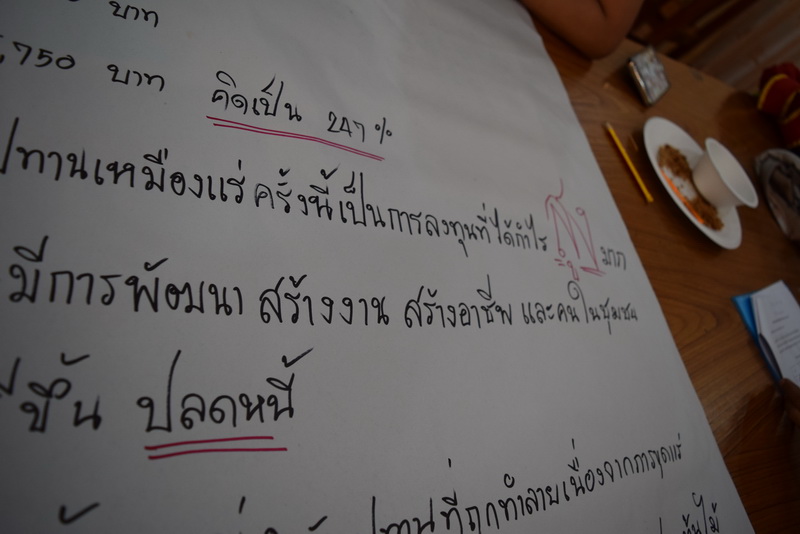 บาท
,750 บาท คิดเป็น 247%
ปทานเหมืองแร่ ครั้งนี้เป็นการลงทุนที่ได้กำไร สูง มาก
มีการพัฒนา สร้างงาน สร้างอาชีพ และคนในชุมชน
ขึ้น ปลดหนี้
ปทานที่ถูกทำลายเนื่องจากการขุดแร่
ต้นไม้